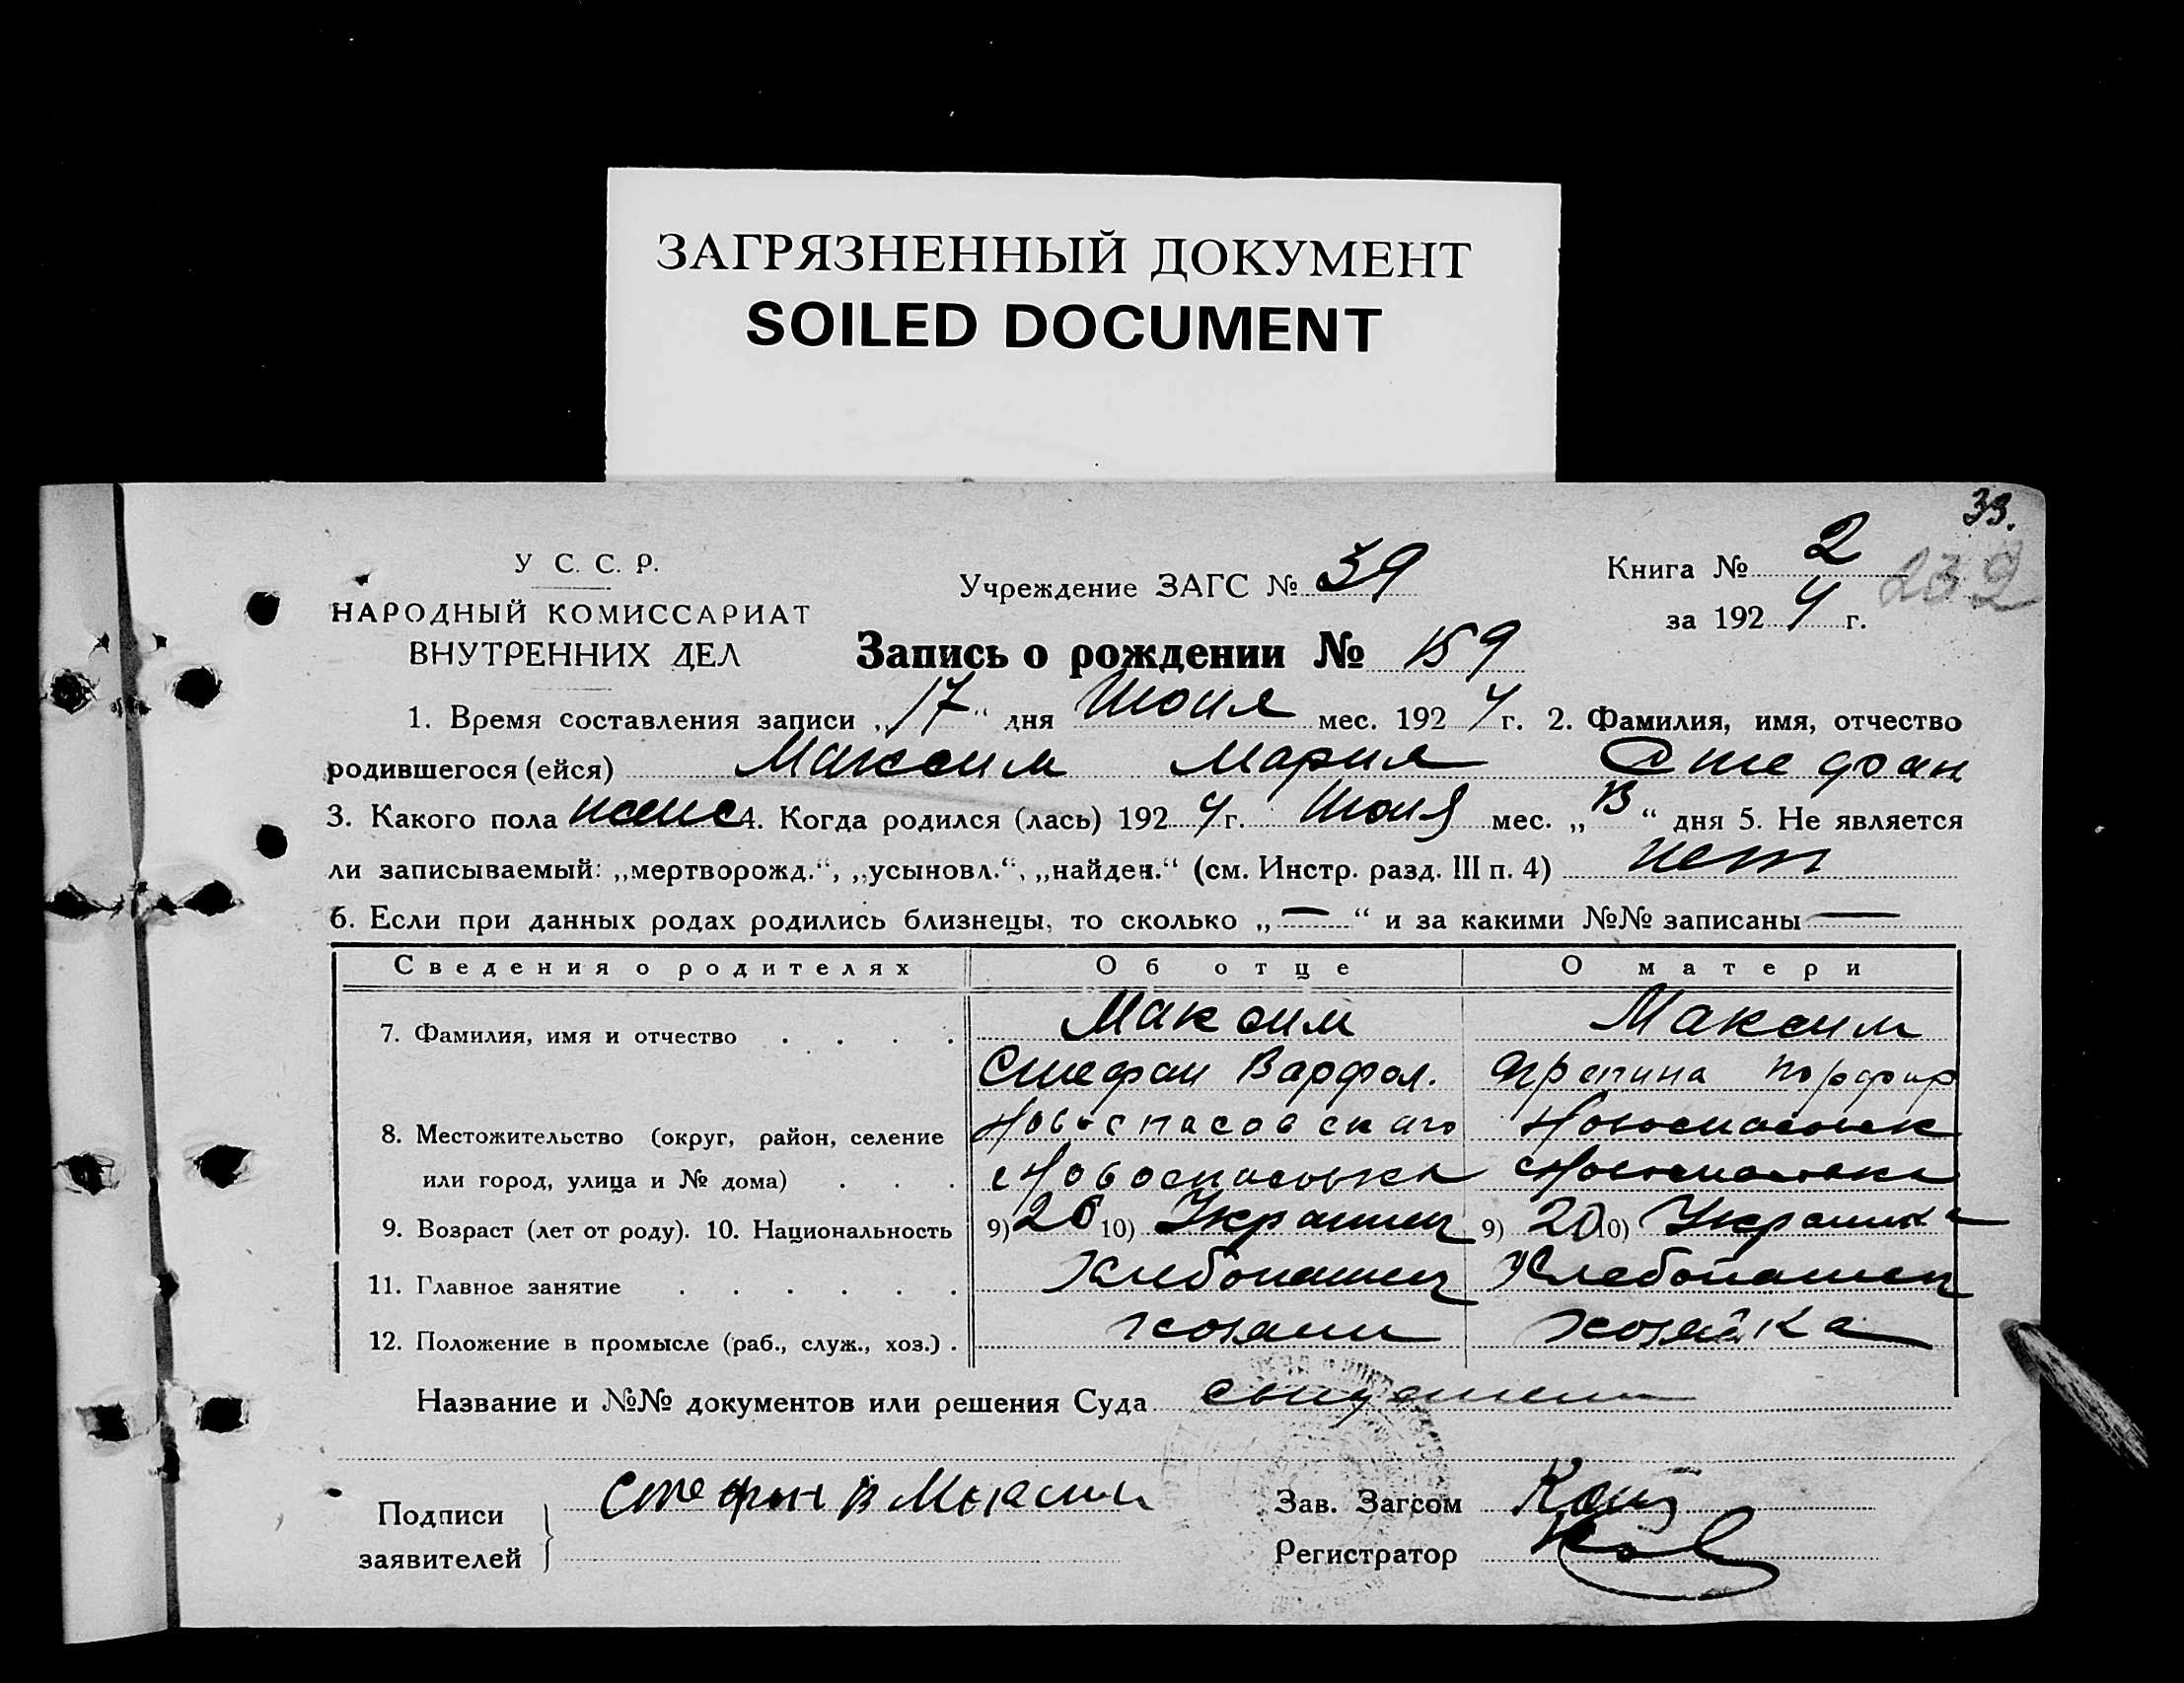 ЗАГРЯЗНЕННЫЙ ДОКУМЕНТ
SOILED DOCUMENT
33.
У С. С. Р.
НАРОДНЫЙ КОМИССАРИАТ
ВНУТРЕННИХ ДЕЛ
Учреждение ЗАГС № 39
Книга № 2
232
за 1924 г.
Запись о рождении № 159
1. Время составления записи „17“ дня Июня мес. 1924 г. 2. Фамилия, имя, отчество
родившегося (ейся) Максим Мария Стефан
3. Какого пола женс 4. Когда родился (лась) 1924 г. Июня мес. „13“ дня 5. Не является
ли записываемый: „мертворожд.“, „усыновл.“, „найден.“ (см. Инстр. разд. III п. 4) нет
6. Если при данных родах родились близнецы, то сколько „—“ и за какими №№ записаны —
Сведения о родителях Об отце О матери
7. Фамилия, имя и отчество . . . . Максим Максим
Стефан Варфол. Агрепина Порфир
8. Местожительство (округ, район, селение Новоспасовского Новоспасовск
или город, улица и № дома) . . . с Новоспасовка с Новоспасовка
9. Возраст (лет от роду). 10. Национальность 9) 20 10) Украинец 9) 20 10) Украинка
11. Главное занятие . . . . . . Хлебопашец Хлебопашец
12. Положение в промысле (раб., служ., хоз.) . хозяин хозяйка
Название и №№ документов или решения Суда
Подписи
заявителей
Стефан В Максим
Зав. Загсом
Регистратор